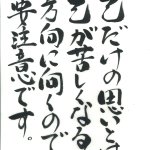 己だけの思いとは
己が苦しくなる
方向に向くので
要注意です。